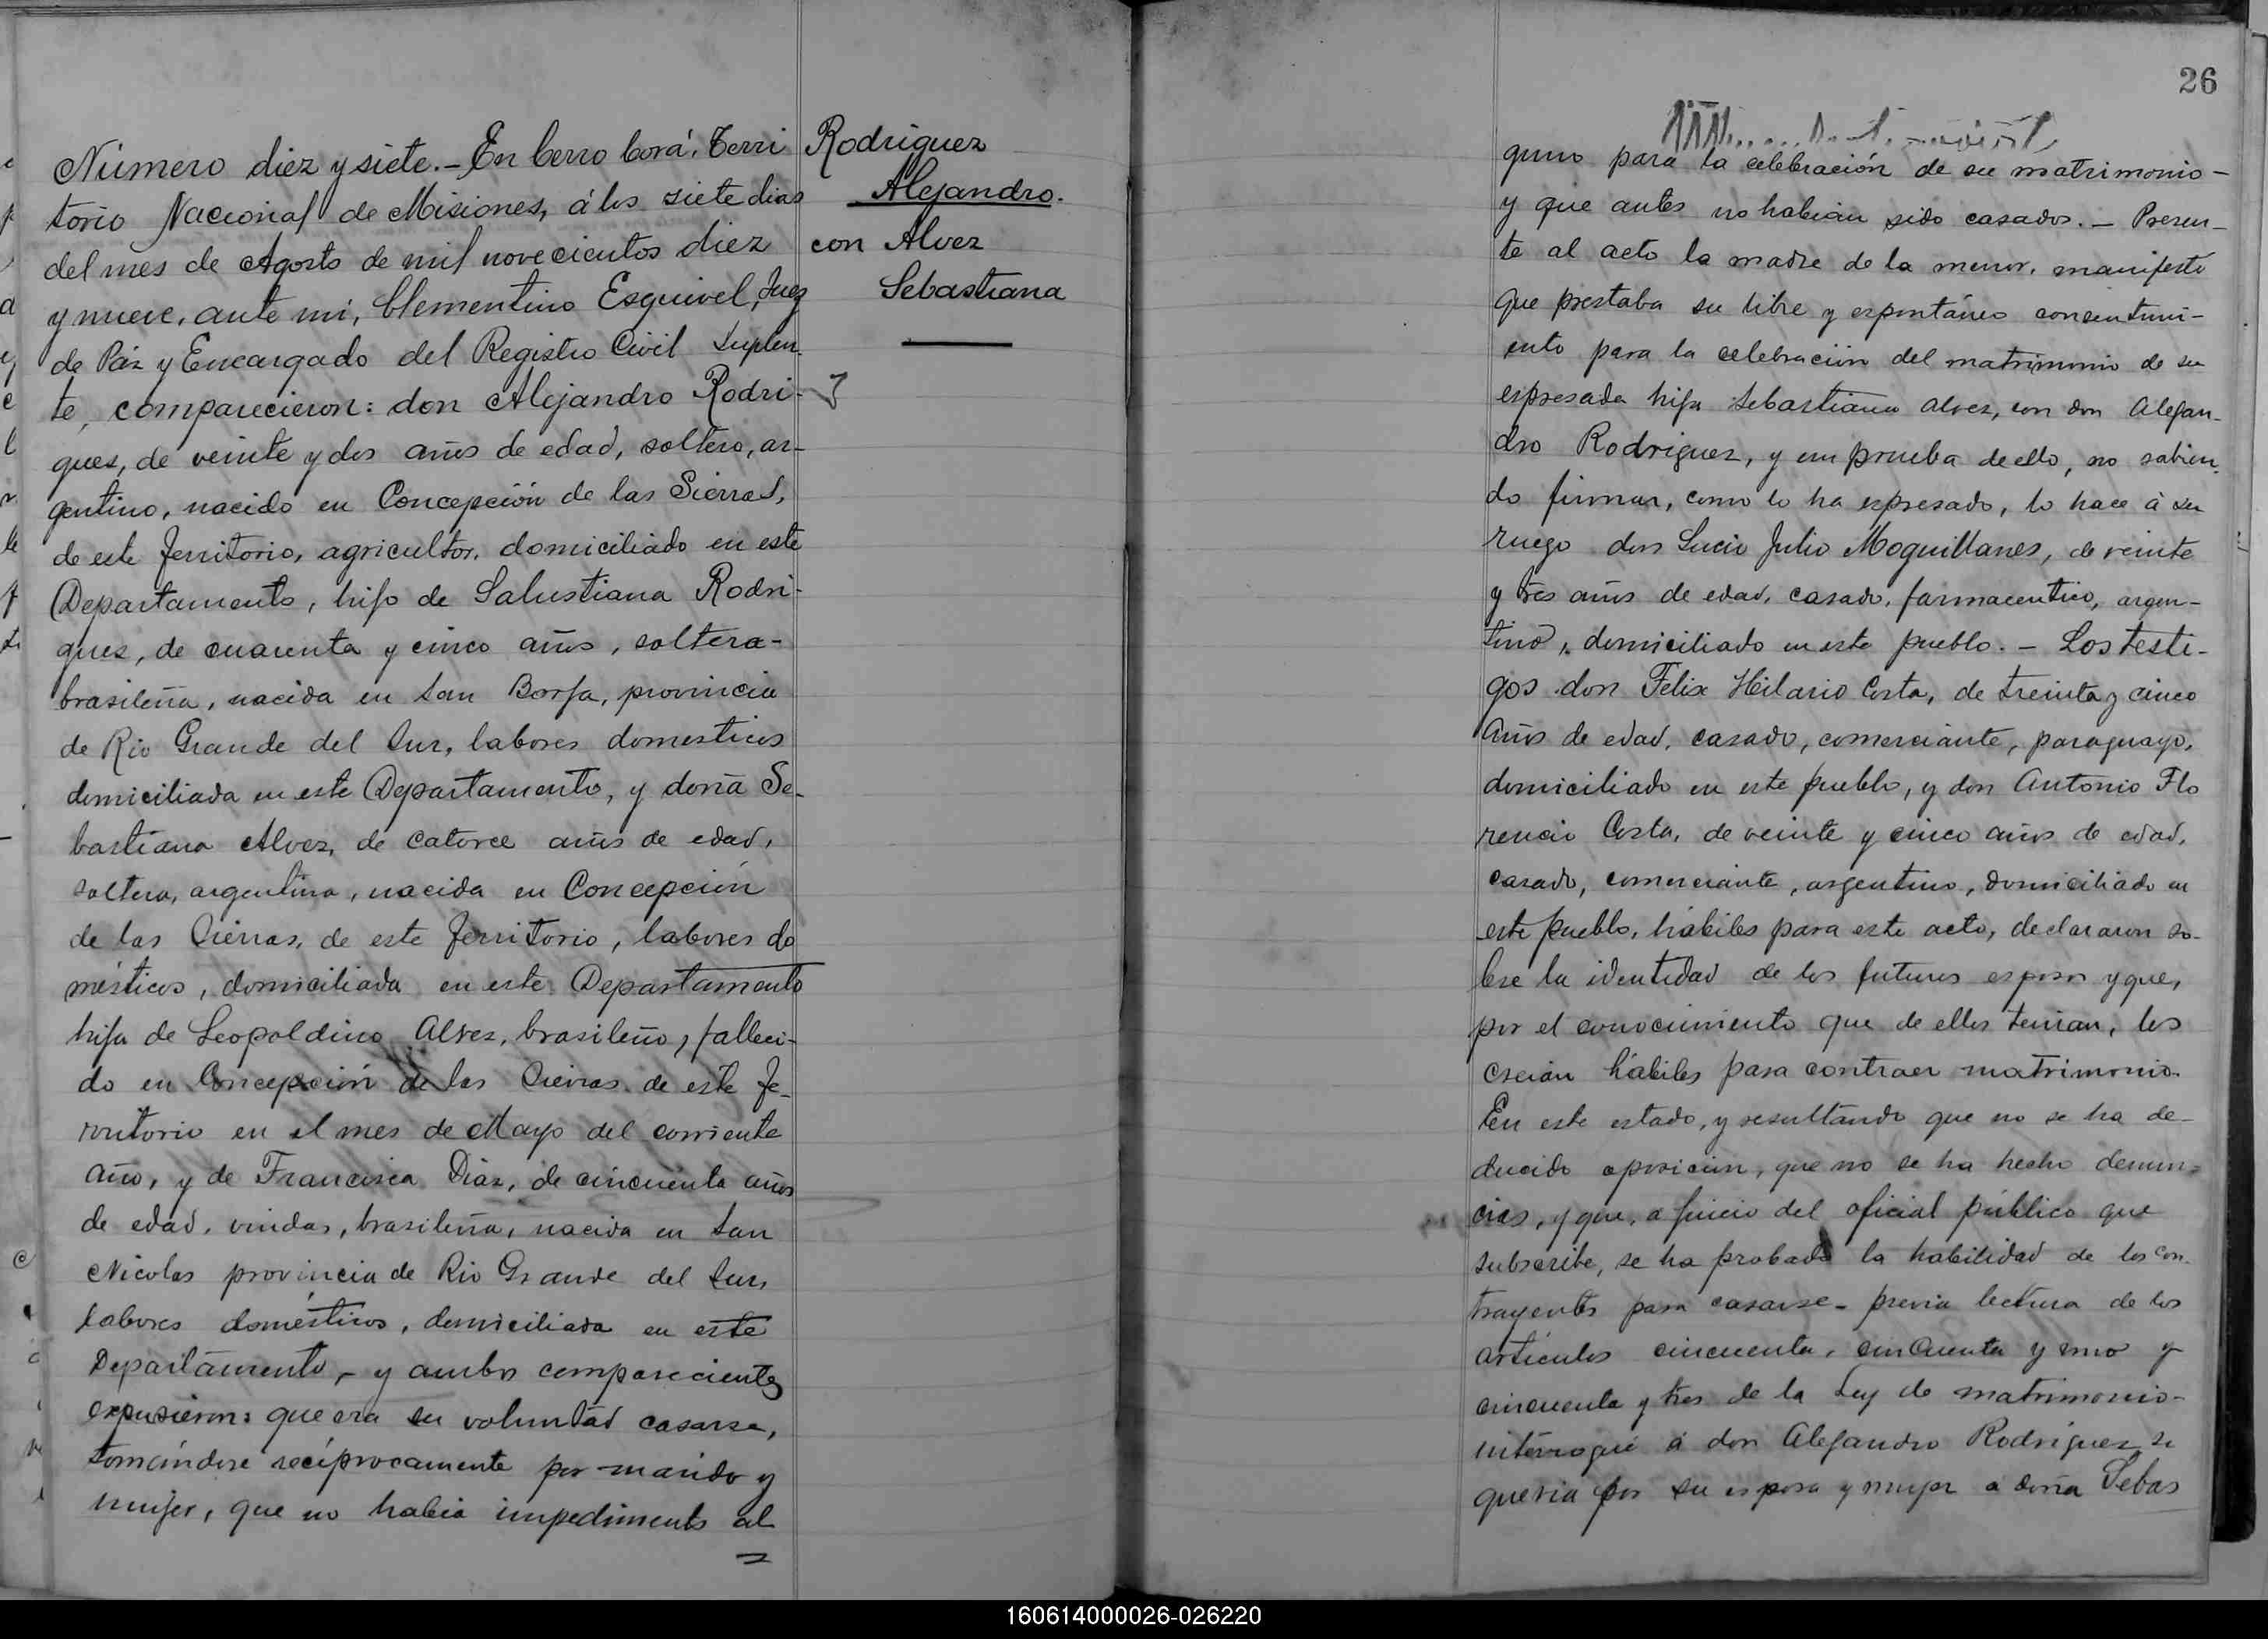 Número diez y siete.- En Cerro Corá, Terri
torio Nacional de Misiones, á los siete dias
del mes de Agosto de mil novecientos diez
y nueve, ante mi, Clementino Esquivel, Juez
de Páz y Encargado del Registro Civil Suplen-
te, comparecieron: don Alejandro Rodri-
guez, de veinte y dos años de edad, soltero, ar-
gentino, nacido en Concepción de las Sierras,
de este Territorio, agricultor, domiciliado en este
Departamento, hijo de Salustiana Rodri-
guez, de cuarenta y cinco años, soltera-
brasileña, nacida en San Borja, provincia
de Rio Grande del Sur, labores domesticos
domiciliada en este Departamento, y doña Se-
bastiana Alvez, de catorce años de edad,
soltera, argentina, nacida en Concepción
de las Sierras, de este Territorio, labores do
mésticos, domiciliada en este Departamento
hija de Leopoldino Alvez, brasileño, falleci-
do en Concepción de las Sierras de este Te-
rritorio en el mes de Mayo del corriente
año, y de Francisca Diaz, de cincuenta años
de edad, viuda, brasileña, nacida en San
Nicolas provincia de Rio Grande del Sur,
labores domésticos, domiciliada en este
Departamento,- y ambos comparecientes
expusieron: que era su voluntad casarse,
tomándose recíprocamente por marido y
mujer, que no habia impedimento al
Rodriguez
Alejandro.
con Alvez
Sebastiana
26
guno para la celebración de su matrimonio-
y que antes no habian sido casados.- Presen-
te al acto la madre de la menor, manifestó
que prestaba su libre y espontáneo consentimi-
ento para la celebración del matrimonio de su
espresada hija Sebastiana Alvez, con don Alejan-
dro Rodriguez, y em prueba de ello, no sabien-
do firmar, como lo ha espresado, lo hace á su
ruego don Lucio Julio Moquillanes, de veinte
y tres años de edad, casado, farmaceutico, argen-
tino, domiciliado en este pueblo.- Los testi-
gos don Felix Hilario Costa, de treinta y cinco
años de edad, casado, comerciante, paraguayo,
domiciliado en este pueblo, y don Antonio Flo
rencio Costa, de veinte y cinco años de edad,
casado, comerciante, argentino, domiciliado en
este pueblo, hábiles para este acto, declararon so-
bre la identidad de los futuros esposos y que,
por el conocimiento que de ellos tenian, los
creían hábiles para contraer matrimonio.
En este estado, y resultando que no se ha de-
ducido oposición, que no se ha hecho denun-
cias, y que, a juicio del oficial público que
subscribe, se ha probado la habilidad de los con-
trayentes para casarse- previa lectura de los
artículos cincuenta, cincuenta y uno y
cincuenta y tres de la Ley de matrimonio-
intérrogué á don Alejandro Rodriguez si
queria por su esposa y mujer a doña Sebas
160614000026-026220